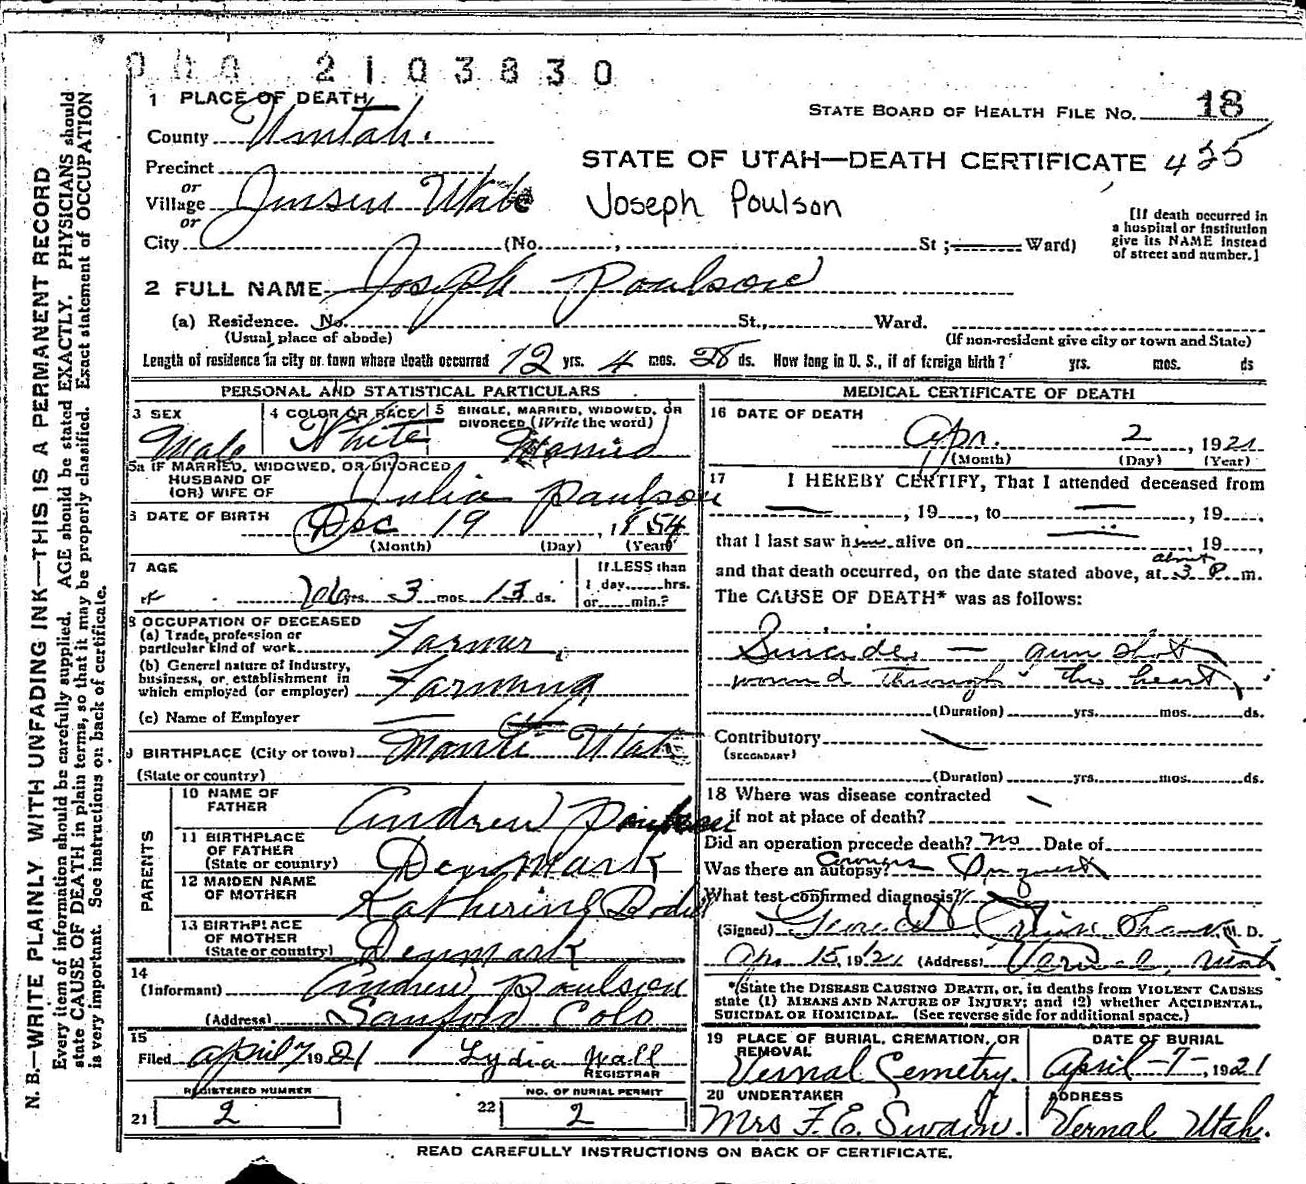 2103830
1 PLACE OF DEATH
STATE BOARD OF HEALTH FILE No. 18
County Uintah.
STATE OF UTAH—DEATH CERTIFICATE 425
Precinct
or
Village Jensen Utah
Joseph Poulson
or
City (No. , St ; Ward)
[If death occurred in
a hospital or institution
give its NAME instead
of street and number.]
2 FULL NAME Joseph Poulson
(a) Residence. No. St., Ward.
(Usual place of abode)
(If non-resident give city or town and State)
Length of residence in city or town where death occurred 12 yrs. 4 mos. 28 ds. How long in U. S., if of foreign birth? yrs. mos. ds
PERSONAL AND STATISTICAL PARTICULARS
3 SEX
Male
4 COLOR OR RACE
White
5 SINGLE, MARRIED, WIDOWED, OR
DIVORCED (Write the word)
Married
5a IF MARRIED, WIDOWED, OR DIVORCED
HUSBAND OF
(OR) WIFE OF
Julia Paulson
6 DATE OF BIRTH Dec 19, 1854
(Month) (Day) (Year)
7 AGE
66 yrs. 3 mos. 13 ds.
If LESS than
1 day hrs.
or min.?
8 OCCUPATION OF DECEASED
(a) Trade, profession or
particular kind of work Farmer
(b) General nature of industry,
business, or establishment in
which employed (or employer) Farming
(c) Name of Employer
9 BIRTHPLACE (City or town) Manti Utah
(State or country)
PARENTS
10 NAME OF
FATHER Andrew
11 BIRTHPLACE
OF FATHER
(State or country) Denmark
12 MAIDEN NAME
OF MOTHER Katherine
13 BIRTHPLACE
OF MOTHER
(State or country) Denmark
14
(Informant) Andrew Poulson
(Address) Sanford Colo
15
Filed April 7 1921 Lydia Wall
REGISTRAR
REGISTERED NUMBER
21 2
NO. OF BURIAL PERMIT
22 2
MEDICAL CERTIFICATE OF DEATH
16 DATE OF DEATH
Apr. 2, 1921
(Month) (Day) (Year)
17 I HEREBY CERTIFY, That I attended deceased from
, 19 , to , 19 ,
that I last saw him alive on , 19 ,
about
and that death occurred, on the date stated above, at 3 P. m.
The CAUSE OF DEATH* was as follows:
Suicide — gun shot
wound through the heart
(Duration) yrs. mos. ds.
Contributory
(SECONDARY)
(Duration) yrs. mos. ds.
18 Where was disease contracted
if not at place of death?
Did an operation precede death? No Date of
Was there an autopsy? Coroners Inquest
What test confirmed diagnosis?
(Signed) M. D.
Apr 15, 1921 (Address) Vernal, Utah
*(State the DISEASE CAUSING DEATH, or, in deaths from VIOLENT CAUSES
state (1) MEANS AND NATURE OF INJURY; and (2) whether ACCIDENTAL,
SUICIDAL OR HOMICIDAL. (See reverse side for additional space.)
19 PLACE OF BURIAL, CREMATION, OR
REMOVAL
Vernal Cemetry.
DATE OF BURIAL
April-7-, 1921
20 UNDERTAKER
Mrs F. E. Swain.
ADDRESS
Vernal Utah.
READ CAREFULLY INSTRUCTIONS ON BACK OF CERTIFICATE.
N. B.—WRITE PLAINLY WITH UNFADING INK—THIS IS A PERMANENT RECORD
Every item of information should be carefully supplied. AGE should be stated EXACTLY. PHYSICIANS should
state CAUSE OF DEATH in plain terms, so that it may be properly classified. Exact statement of OCCUPATION
is very important. See instructions on back of certificate.